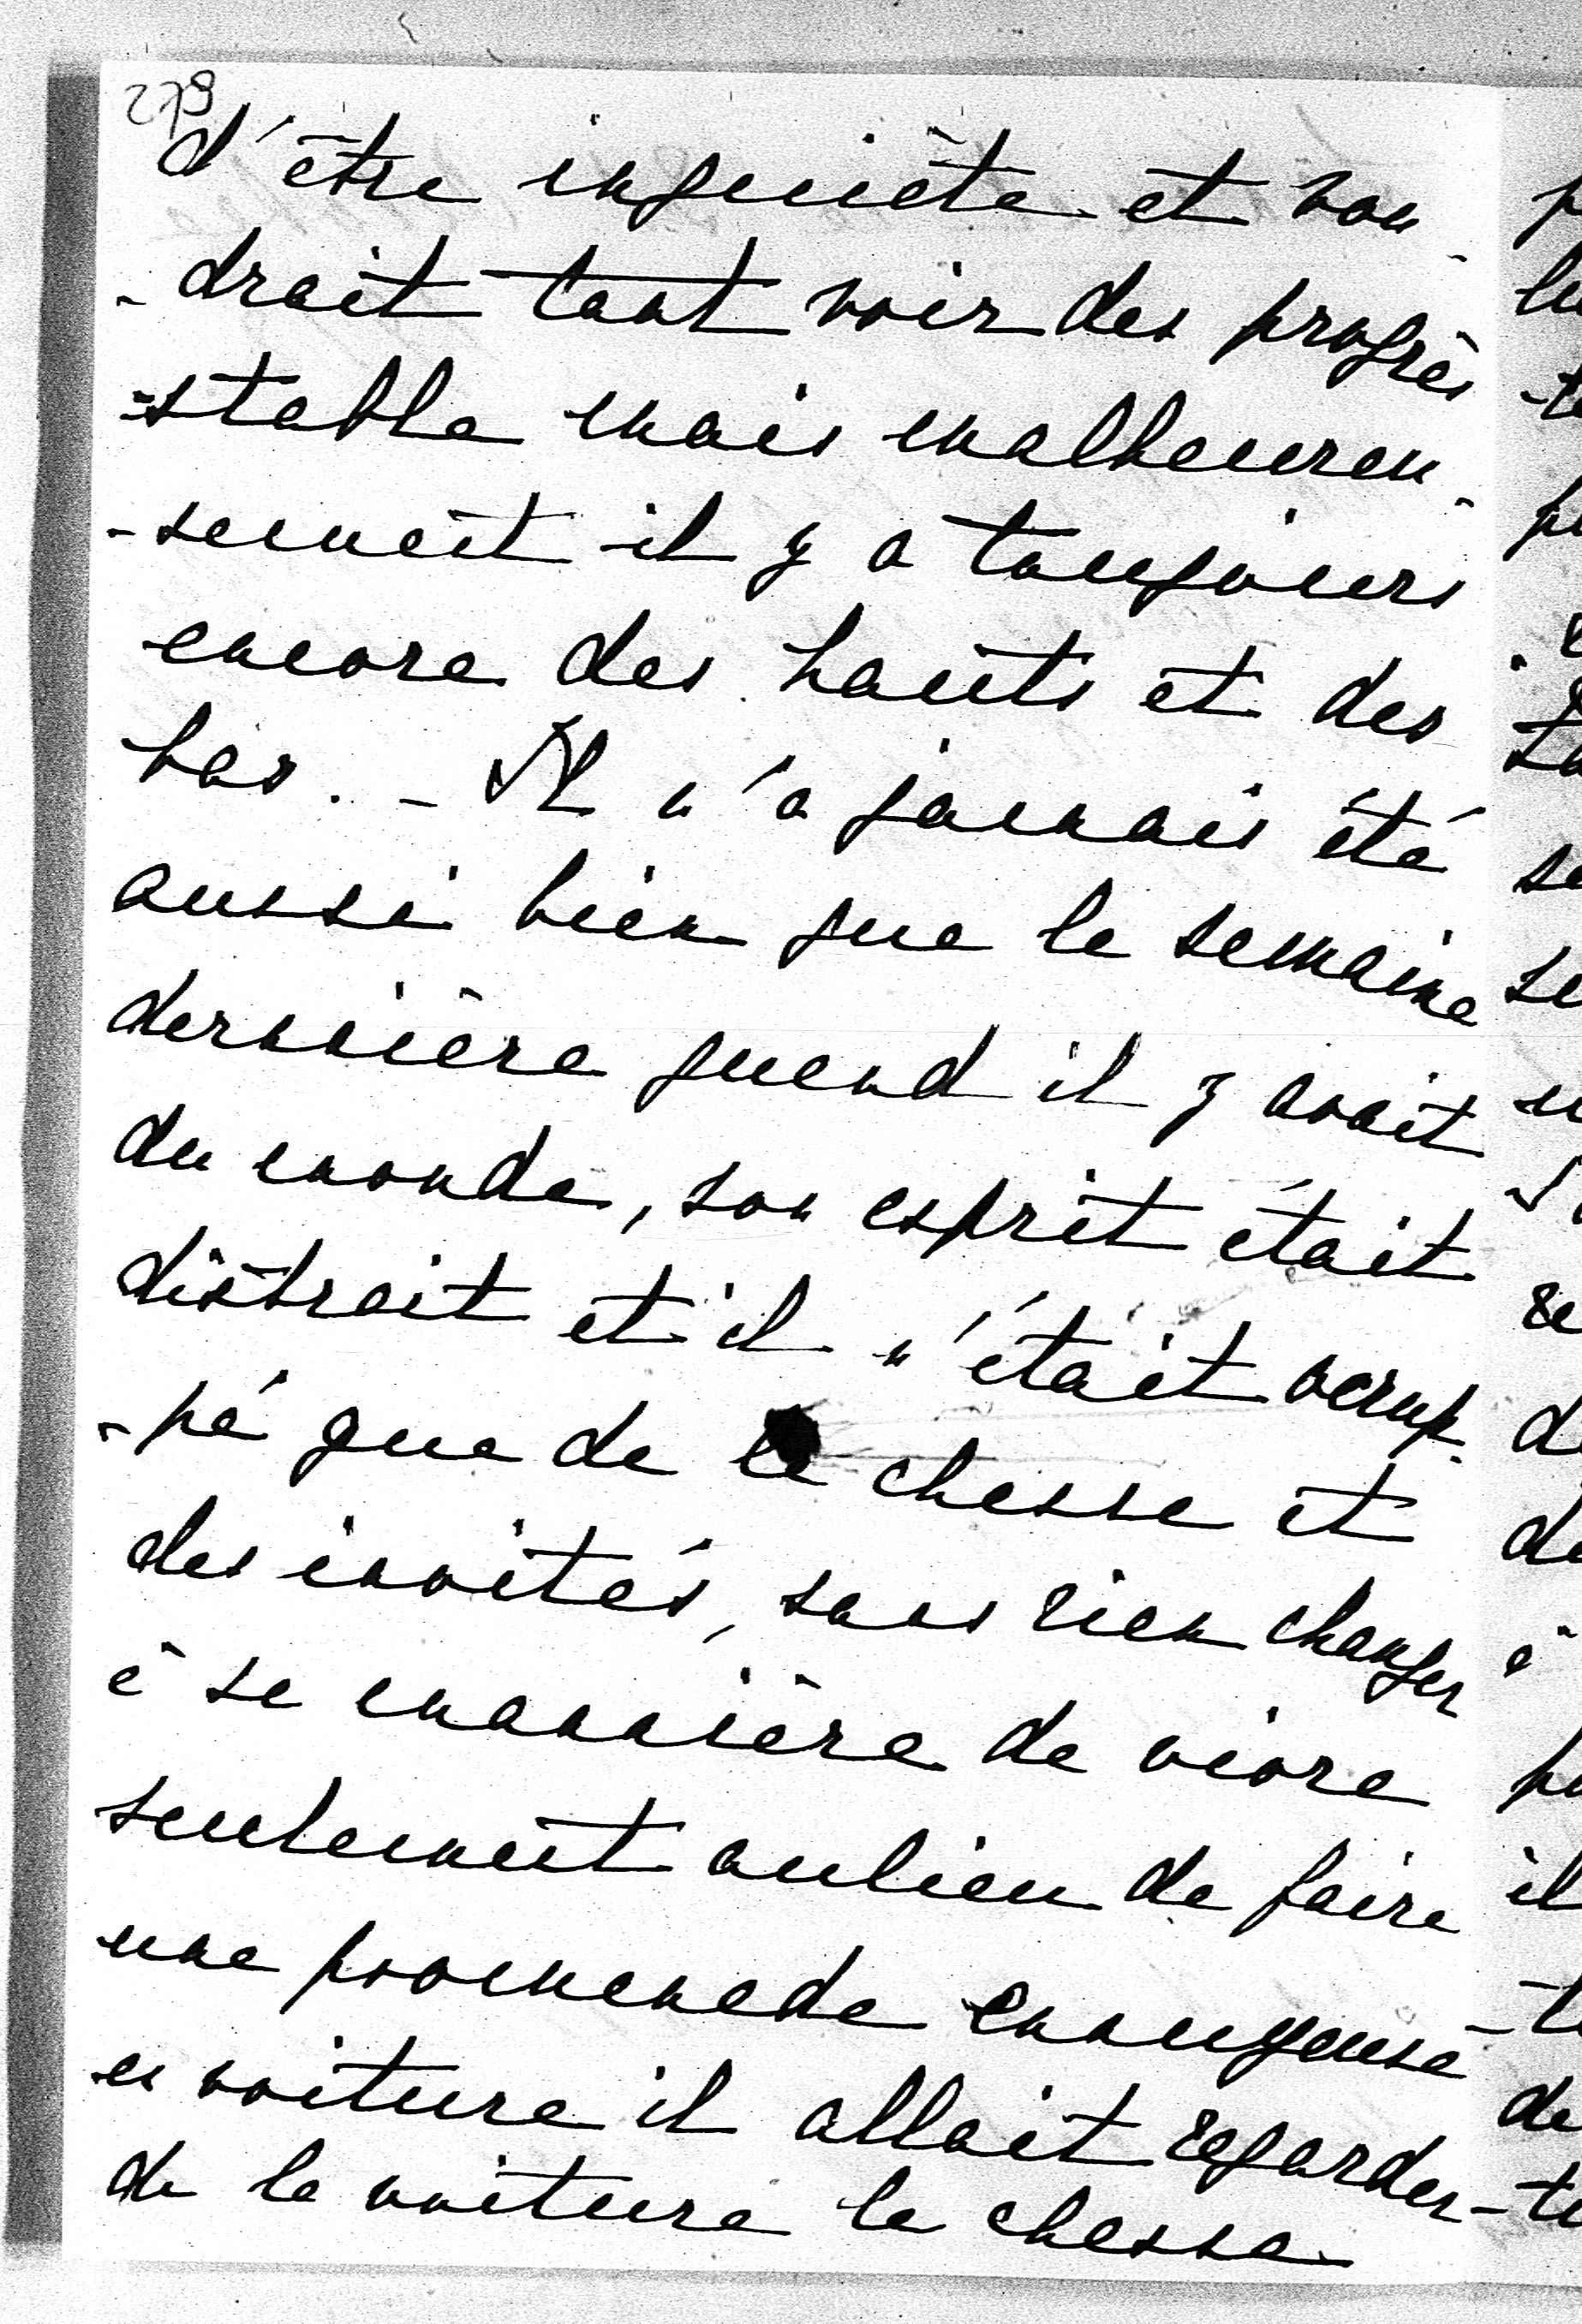 278
d'être inquiète et vou-
-drait tant voir des progrès
-stable mais malheureu-
-sement il y a toujours
encore des hauts et des
bas. - Il n'a jamais été
aussi bien que la semaine
dernière quand il y avait
du monde, son esprit était
distrait et il n'était occup-
-pé que de la chasse et
des invités, sans rien changer
à sa manière de vivre
seulement au lieu de faire
une promenade ennuyeuse
en voiture il allait regarder
de la voiture la chasse